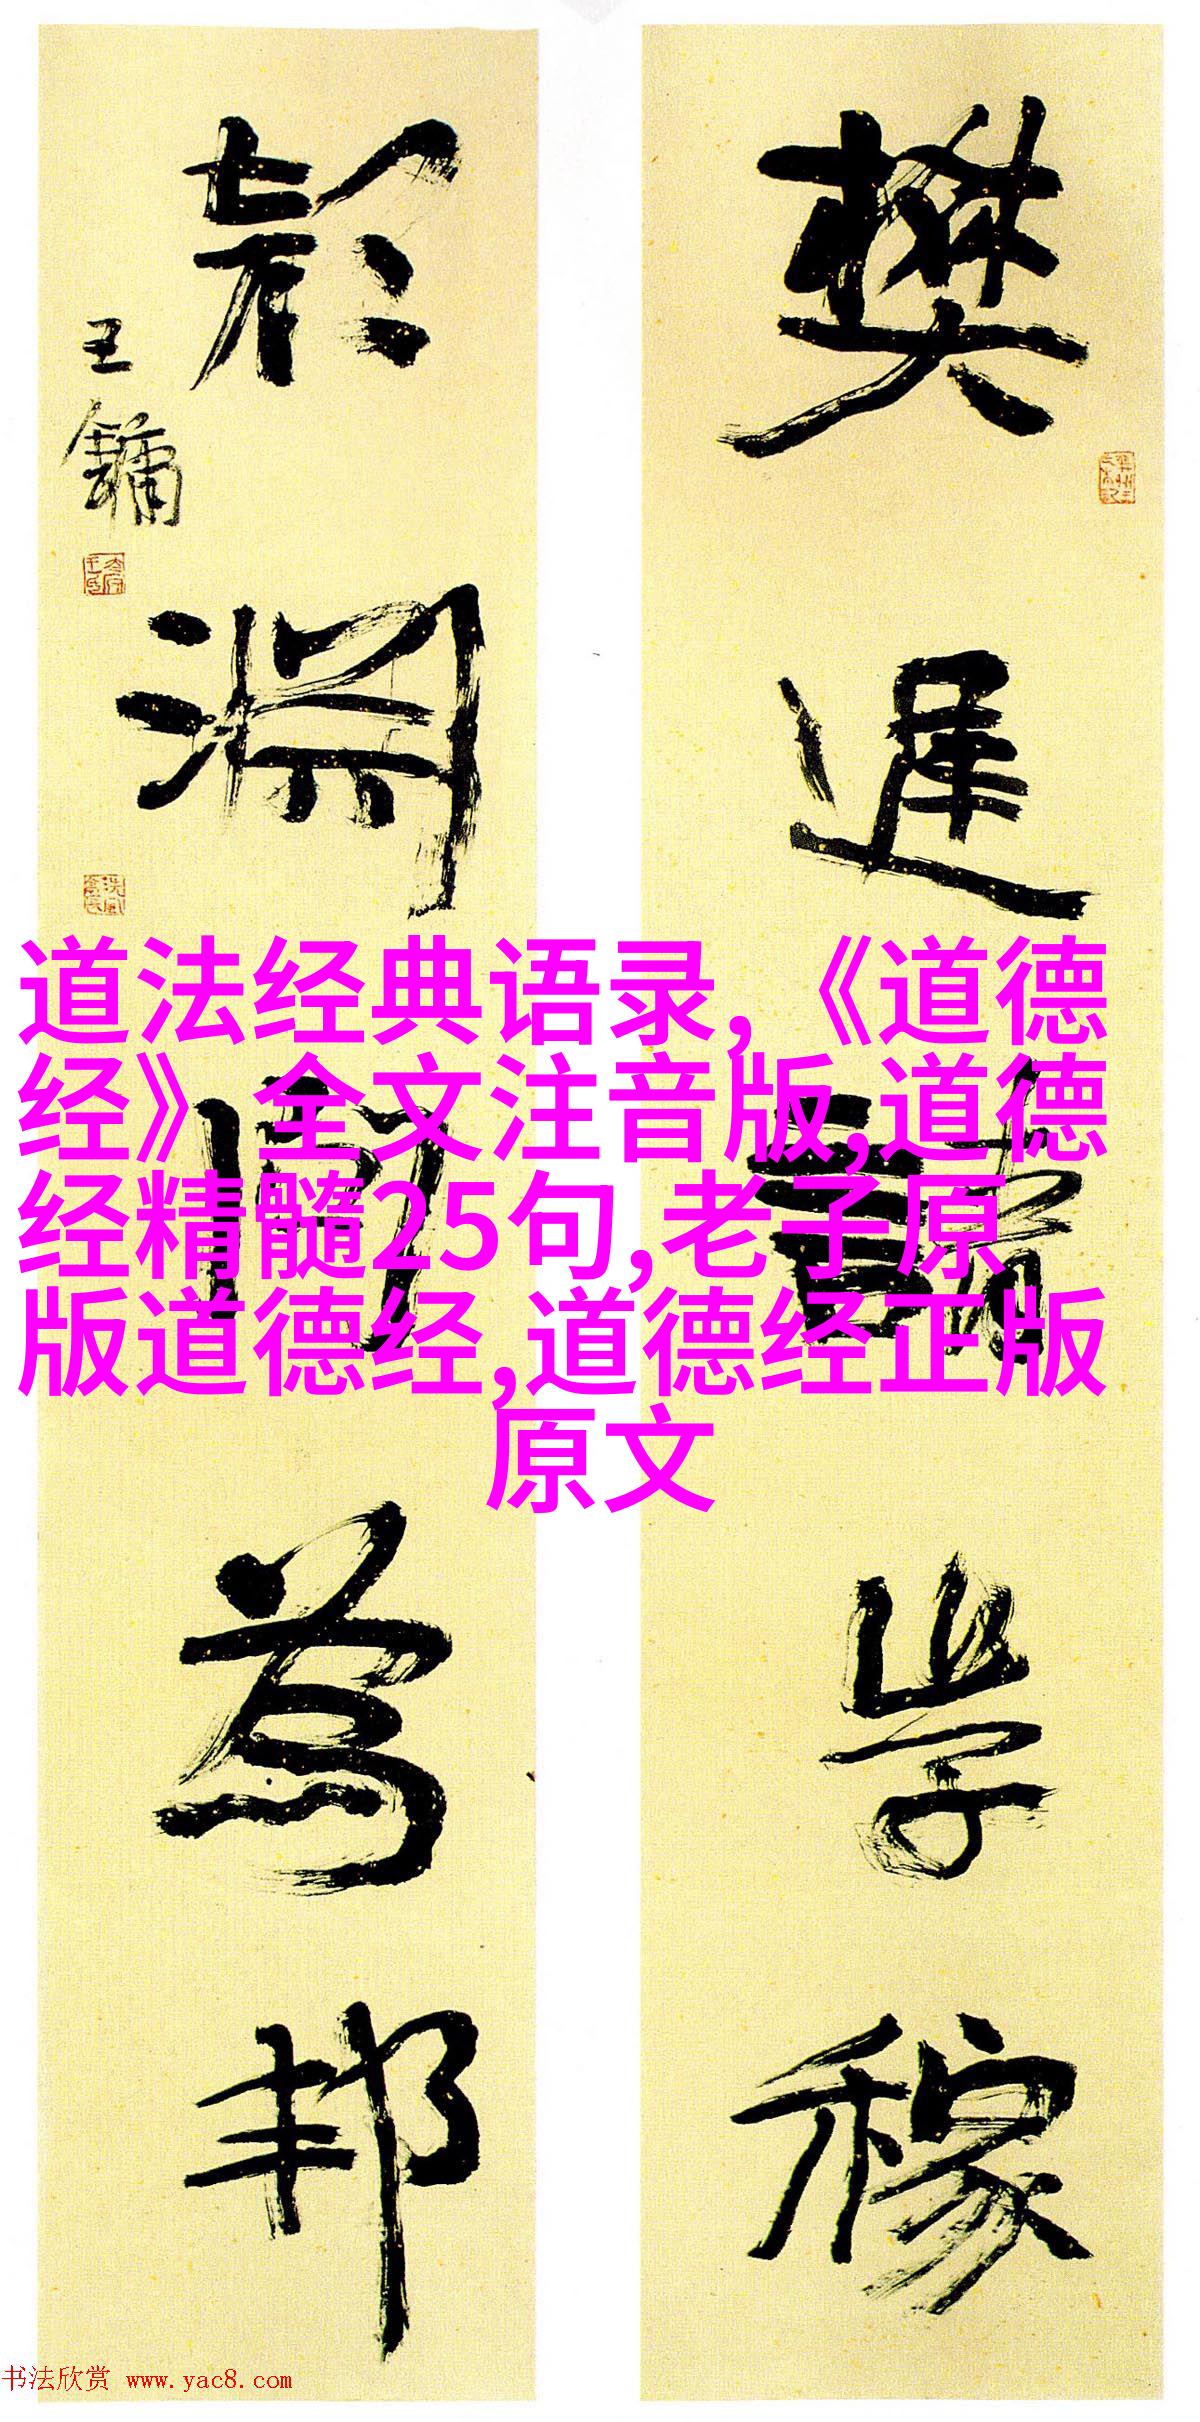 樊遲請学稼
顔淵問為邦
王鏞
道法经典语录,《道德
经》全文注音版,道德
经精髓25句,老子原
版道德经,道德经正版
原文
书法欣赏 www.yac8.com